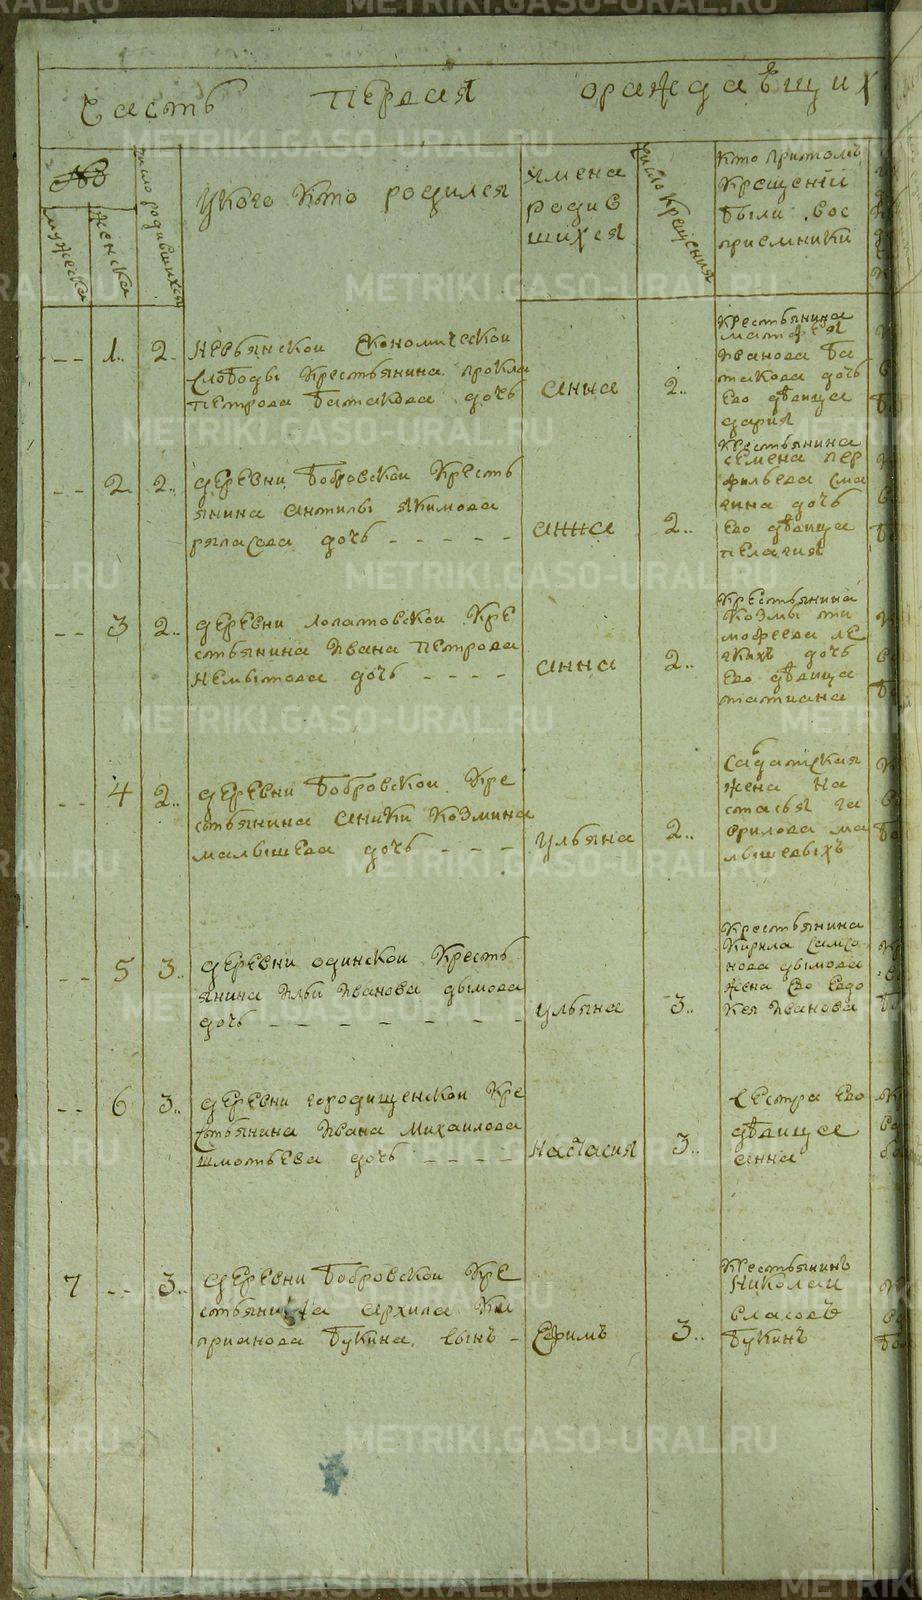 Часть первая ораждающих
№
мужеска
женска
число родившихся
У кого кто родился
Имена
родив
шихся
число крещения
Кто притомъ
крещении
были вос
приемники
-- 1.. 2.
Невьянской економической
слободы крестьянина прокла
петрова батакова дочь
анна
2..
крестьянина
матфея
Иванова ба
такова дочь
ево дѣвица
дария
-- 2 2..
деревни бобровской кресть
янина антипы якимова
дочь - - - - -
анна
2..
крестьянина
семена пер
фильева сма
гина дочь
ево дѣвица
пелагия
-- 3 2..
деревни лопатовской кре
стьянина Ивана петрова
немытова дочь - - - -
анна
2..
крестьянина
козмы ти
мофеева ле
гкихъ дочь
ево дѣвица
татиана
-- 4 2..
деревни бобровской кре
стьянина аники козмина
малышева дочь - - -
Ульяна
2..
салдатская
жена на
стасья га
врилова ма
лышевыхъ
-- 5 3..
деревни одинской кресть
янина Ильи Иванова дымова
дочь - - - - - - - -
Ульяна
3..
крестьянина
кирила самсо
нова дымова
жена ево евдо
кея Иванова
-- 6 3..
деревни городищенской кре
стьянина Ивана михаилова
шмотьева дочь - - - -
настасия
3..
сестра ево
дѣвица
анна
7 -- 3..
деревни бобровской кре
стьянина архипа ки
прианова букина сынъ -
Ефимъ
3..
крестьянинъ
николаи
власовъ
букинъ
METRIKI.GASO-URAL.RU